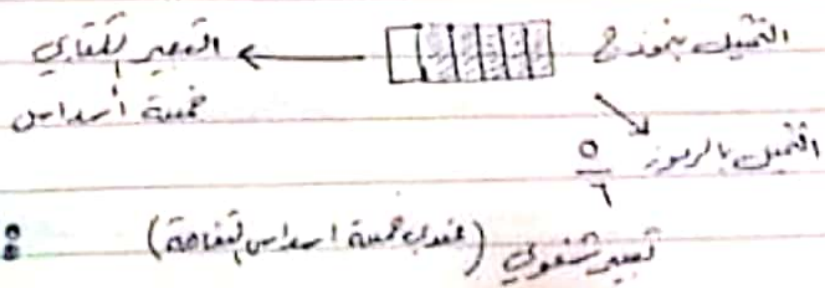 التمثيل بنموذج
التعبير الكتابي
خمسة أسداس
التمثيل بالرموز ٥/٦
تعبير شفوي (عندي خمسة اسداس التفاحة)